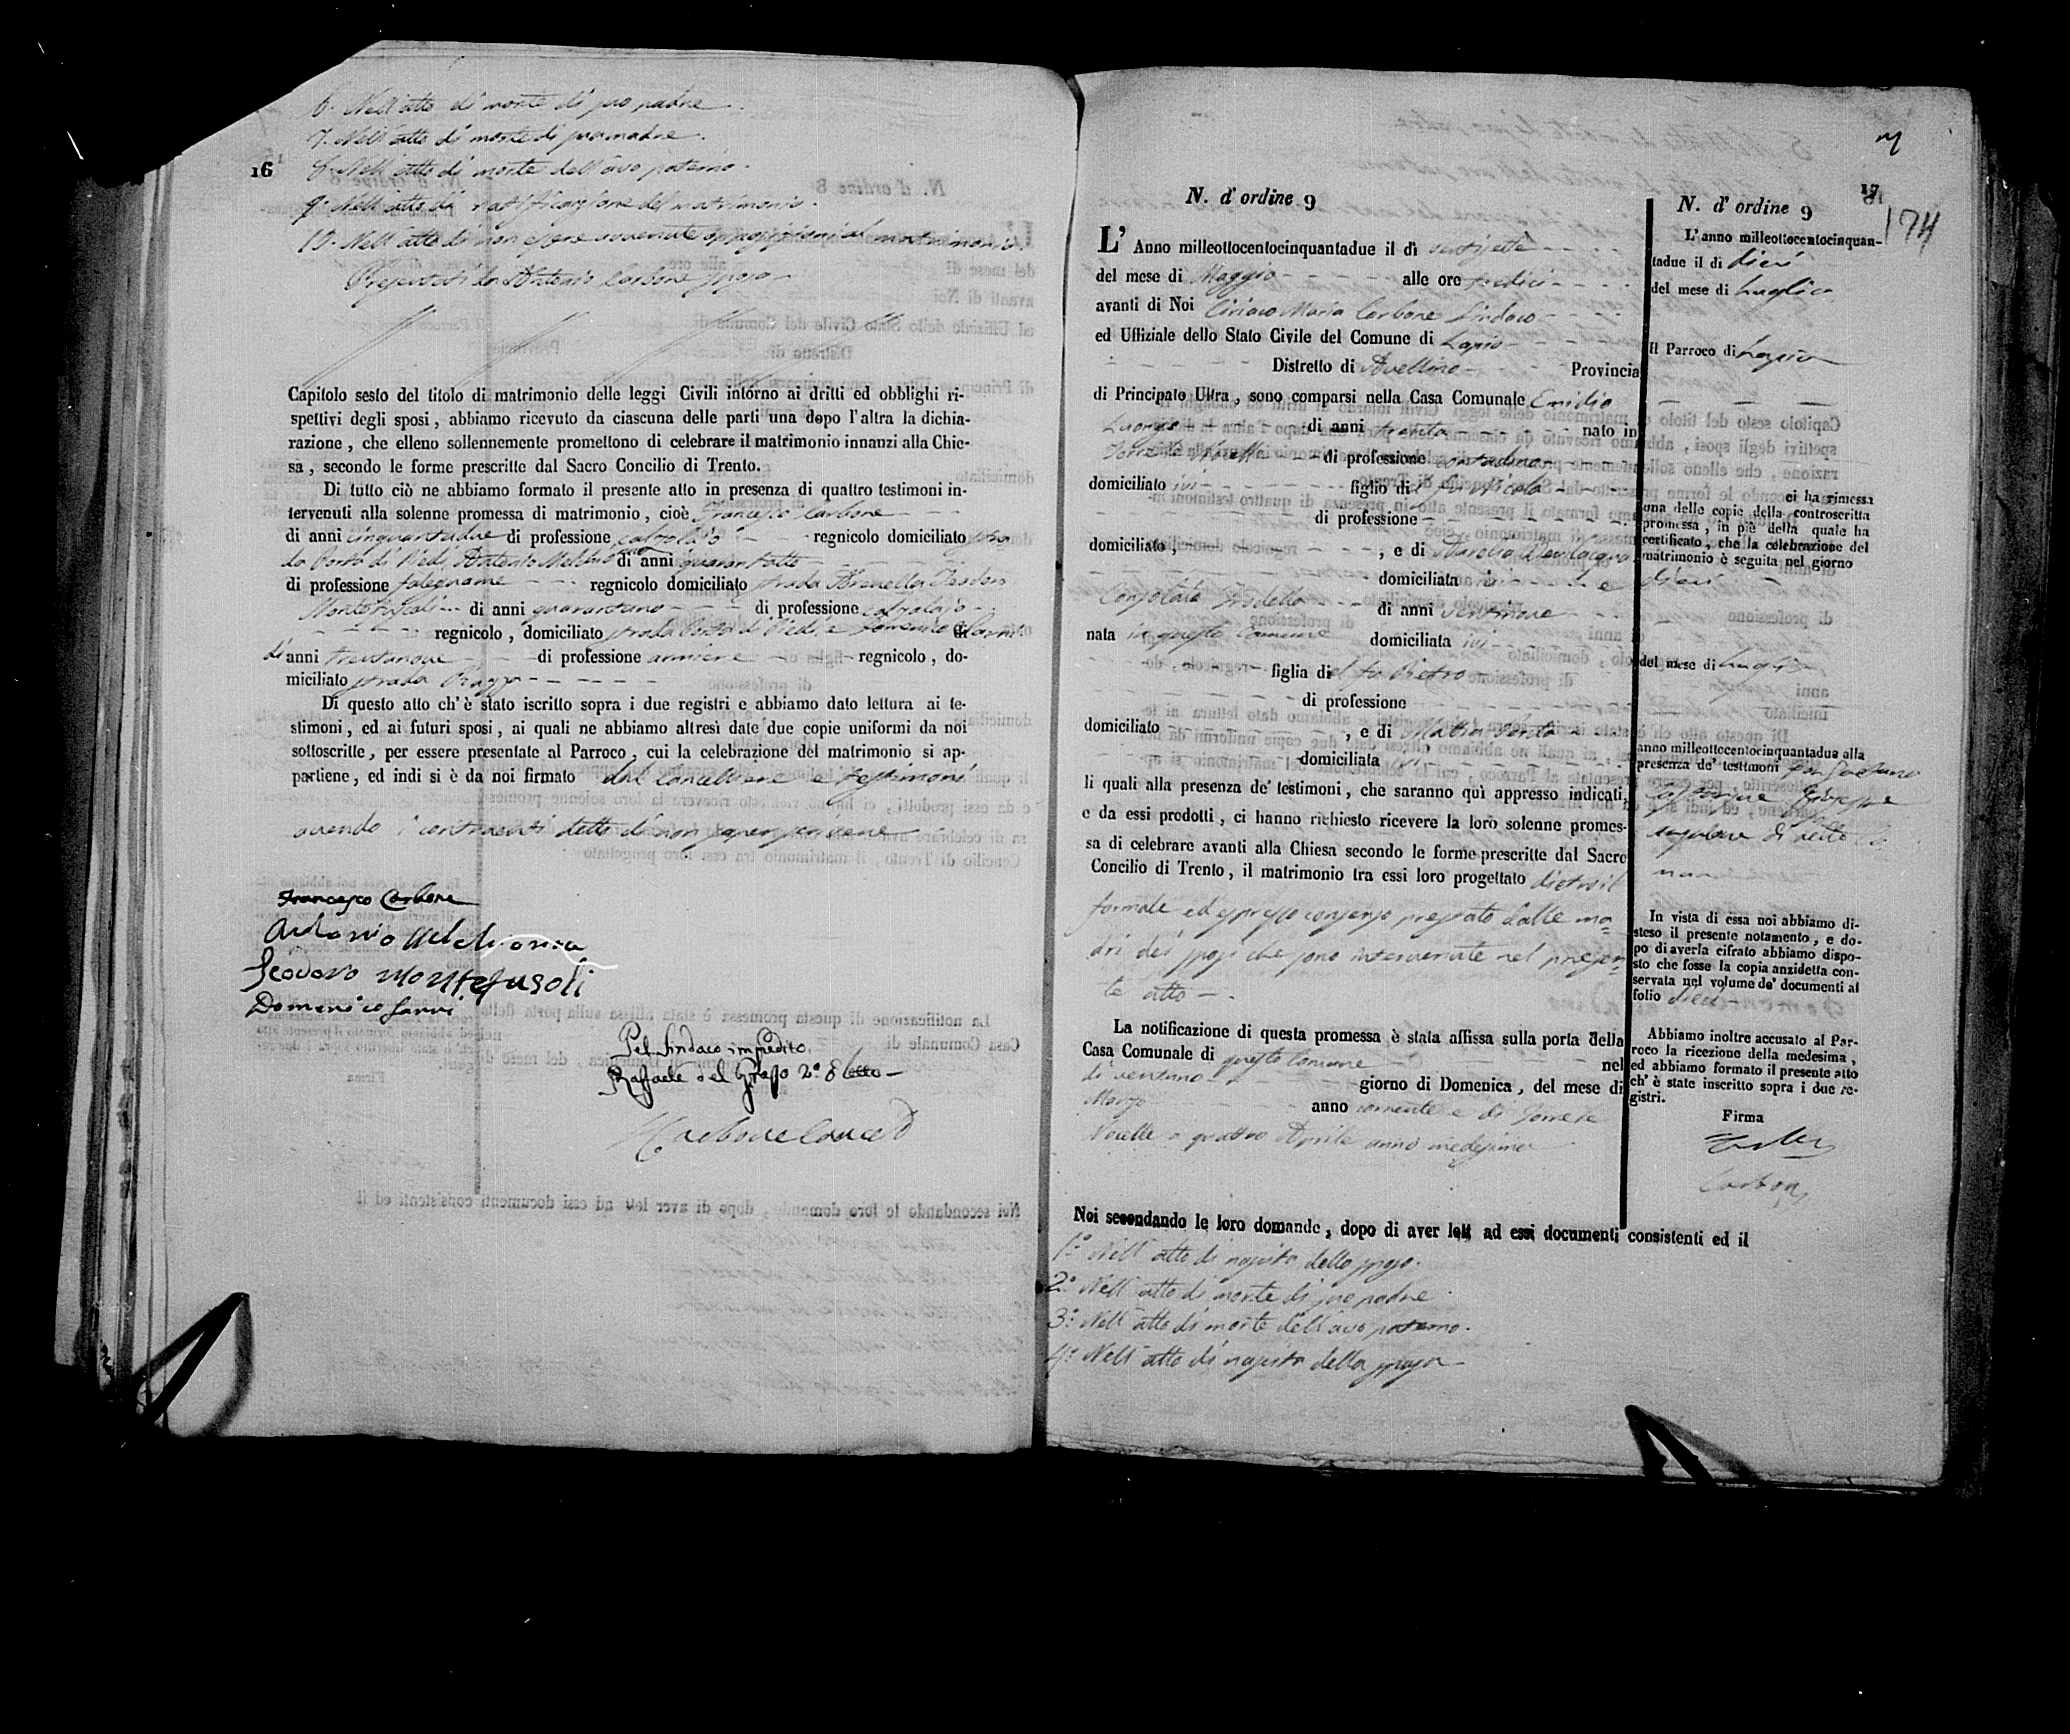 6. Nell'atto di morte di suo padre.
7. Nell'atto di morte di sua madre.
16
8. Nell'atto di morte dell'avo paterno.
9. Nell'atto di ratificazione del matrimonio.
10. Nell'atto di non essere avvenute opposizioni al matrimonio.
Presentati da Antonio Carbone sposo
Capitolo sesto del titolo di matrimonio delle leggi Civili intorno ai dritti ed obblighi ri-
spettivi degli sposi, abbiamo ricevuto da ciascuna delle parti una dopo l'altra la dichia-
razione, che elleno sollennemente promettono di celebrare il matrimonio innanzi alla Chie-
sa, secondo le forme prescritte dal Sacro Concilio di Trento.
Di tutto ciò ne abbiamo formato il presente atto in presenza di quattro testimoni in-
tervenuti alla solenne promessa di matrimonio, cioè Francesco Carbone
di anni cinquantadue di professione calzolajo regnicolo domiciliato strada
Porta di Piedi, Antonio di anni quarantotto
di professione falegname regnicolo domiciliato strada Teodoro
Montefuscoli di anni quarantuno di professione calzolajo
regnicolo, domiciliato strada Porta di Piedi e Domenico
di anni trentanove di professione regnicolo, do-
miciliato strada Piazza
Di questo atto ch'è stato iscritto sopra i due registri e abbiamo dato lettura ai te-
stimoni, ed ai futuri sposi, ai quali ne abbiamo altresì date due copie uniformi da noi
sottoscritte, per essere presentate al Parroco, cui la celebrazione del matrimonio si ap-
partiene, ed indi si è da noi firmato dal Cancelliere e testimoni
avendo i contraenti detto di non saper scrivere
Francesco Carbone
Antonio Melchionna
Teodoro Montefusoli
Domenico
Pel Sindaco impedito
Raffaele del Grosso 2º Eletto
Carbone Canc.
17
174
N. d'ordine 9
L'Anno milleottocentocinquantadue il dì ventisette
del mese di Maggio alle ore tredici
avanti di Noi Ciriaco Maria Carbone Sindaco
ed Uffiziale dello Stato Civile del Comune di Lapio
Distretto di Avellino Provincia
di Principato Ultra, sono comparsi nella Casa Comunale Emidio
Luongo di anni trenta nato in
Torre le Nocelle di professione contadino
domiciliato ivi figlio del fu Nicola
di professione
domiciliato, , e di Aurelia Bevilacqua
domiciliata ivi e
Consolata Trodella di anni ventinove
nata in questo Comune domiciliata ivi
figlia del fu Pietro
di professione
domiciliato , e di Mattia
domiciliata ivi
li quali alla presenza de' testimoni, che saranno quì appresso indicati,
e da essi prodotti, ci hanno richiesto ricevere la loro solenne promes-
sa di celebrare avanti alla Chiesa secondo le forme prescritte dal Sacro
Concilio di Trento, il matrimonio tra essi loro progettato dietro il
formale ed espresso consenso prestato dalle ma-
dri dei sposi che sono intervenute nel presen-
te atto
La notificazione di questa promessa è stata affissa sulla porta della
Casa Comunale di questo Comune nel
dì ventuno giorno di Domenica, del mese di
Marzo anno corrente e di Torre le
Nocelle a quattro Aprile anno medesimo
Noi secondando le loro domande, dopo di aver letti ad essi documenti consistenti ed il
1º Nell'atto di nascita dello sposo.
2º Nell'atto di morte di suo padre.
3º Nell'atto di morte dell'avo paterno.
4º Nell'atto di nascita della sposa
N. d'ordine 9
L'anno milleottocentocinquan-
tadue il di dieci
del mese di Luglio
Il Parroco di Lapio
ci ha rimessa
una delle copie della controscritta
promessa, in piè della quale ha
certificato, che la celebrazione del
matrimonio è seguita nel giorno
dieci
del mese di Luglio
anno milleottocentocinquantadue alla
presenza de' testimoni
In vista di essa noi abbiamo di-
steso il presente notamento, e do-
po di averla cifrato abbiamo dispo-
sto che fosse la copia anzidetta con-
servata nel volume de' documenti al
folio dieci
Abbiamo inoltre accusato al Par-
roco la ricezione della medesima,
ed abbiamo formato il presente atto
ch'è stato inscritto sopra i due re-
gistri.
Firma
Carbone